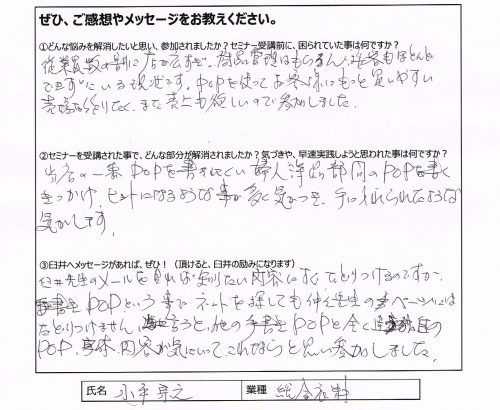 ぜひ、ご感想やメッセージをお教えください。
①どんな悩みを解消したいと思い、参加されましたか？セミナー受講前に、困られていた事は何ですか？
従業員数の割に店が広すぎ、商品管理はもちろん、接客もほとんど
できずにいる現状です。POPを使ってお客様にもっと買いやすい
売場を作りたく、また売上も欲しいので参加しました。
②セミナーを受講された事で、どんな部分が解消されましたか？気づきや、早速実践しようと思われた事は何ですか？
当店の一番POPを書きにくい婦人洋品部門のPOPを書く
きっかけ、ヒントになるような事が多く気がつき、手に入れられたような
気がします。
③臼井へメッセージがあれば、ぜひ！（頂けると、臼井の励みになります）
臼井先生のメールを見れば知りたい内容にすぐたどりつけるのですが、
手書きPOPという事でネットを探しても仲々先生のページには
たどりつけません。言うと、他の手書きPOPと全く の
POP、 内容が気にいって、これならと思い参加しました。
氏名
業種 総合衣料